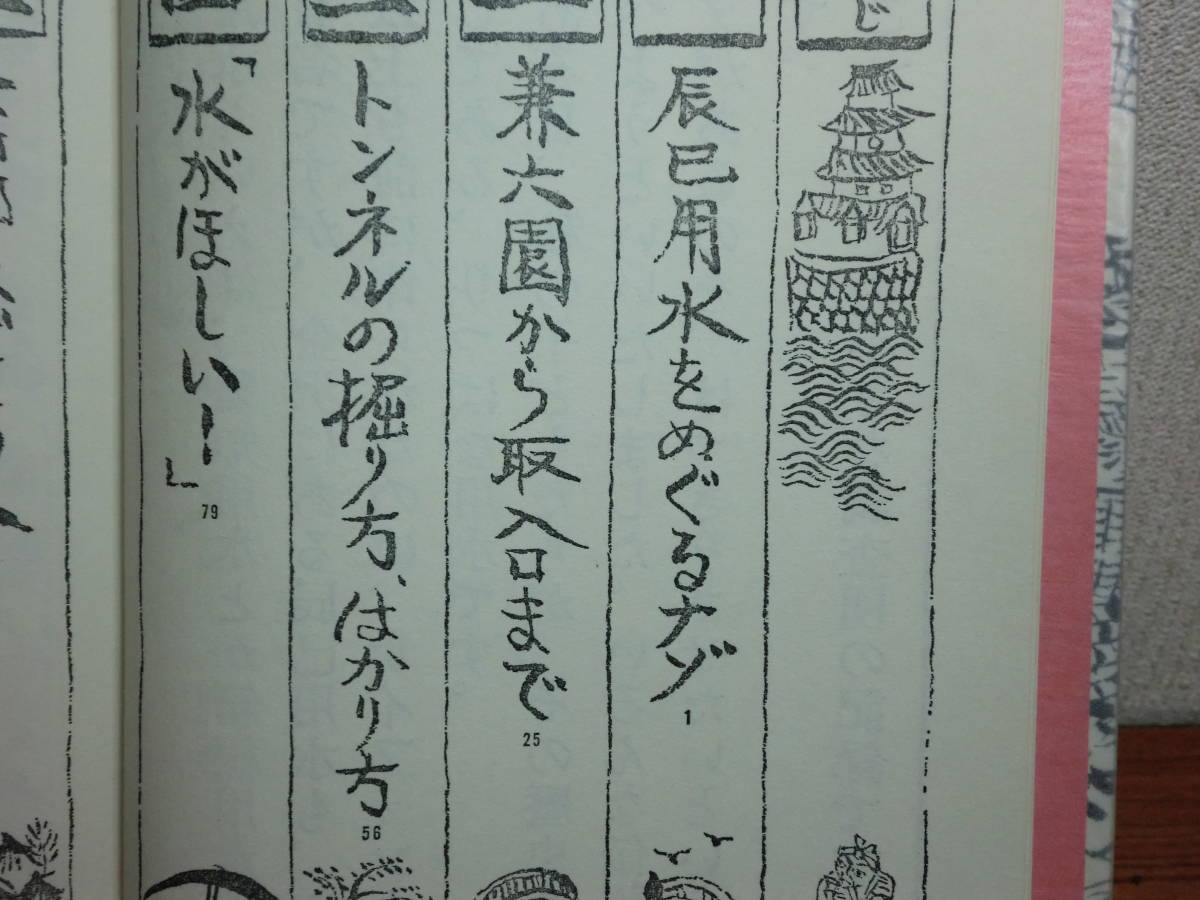 じ
辰巳用水をめぐるナゾ
1
兼六園から取入口まで
25
トンネルの掘り方、はかり方
56
「水がほしい！」
79